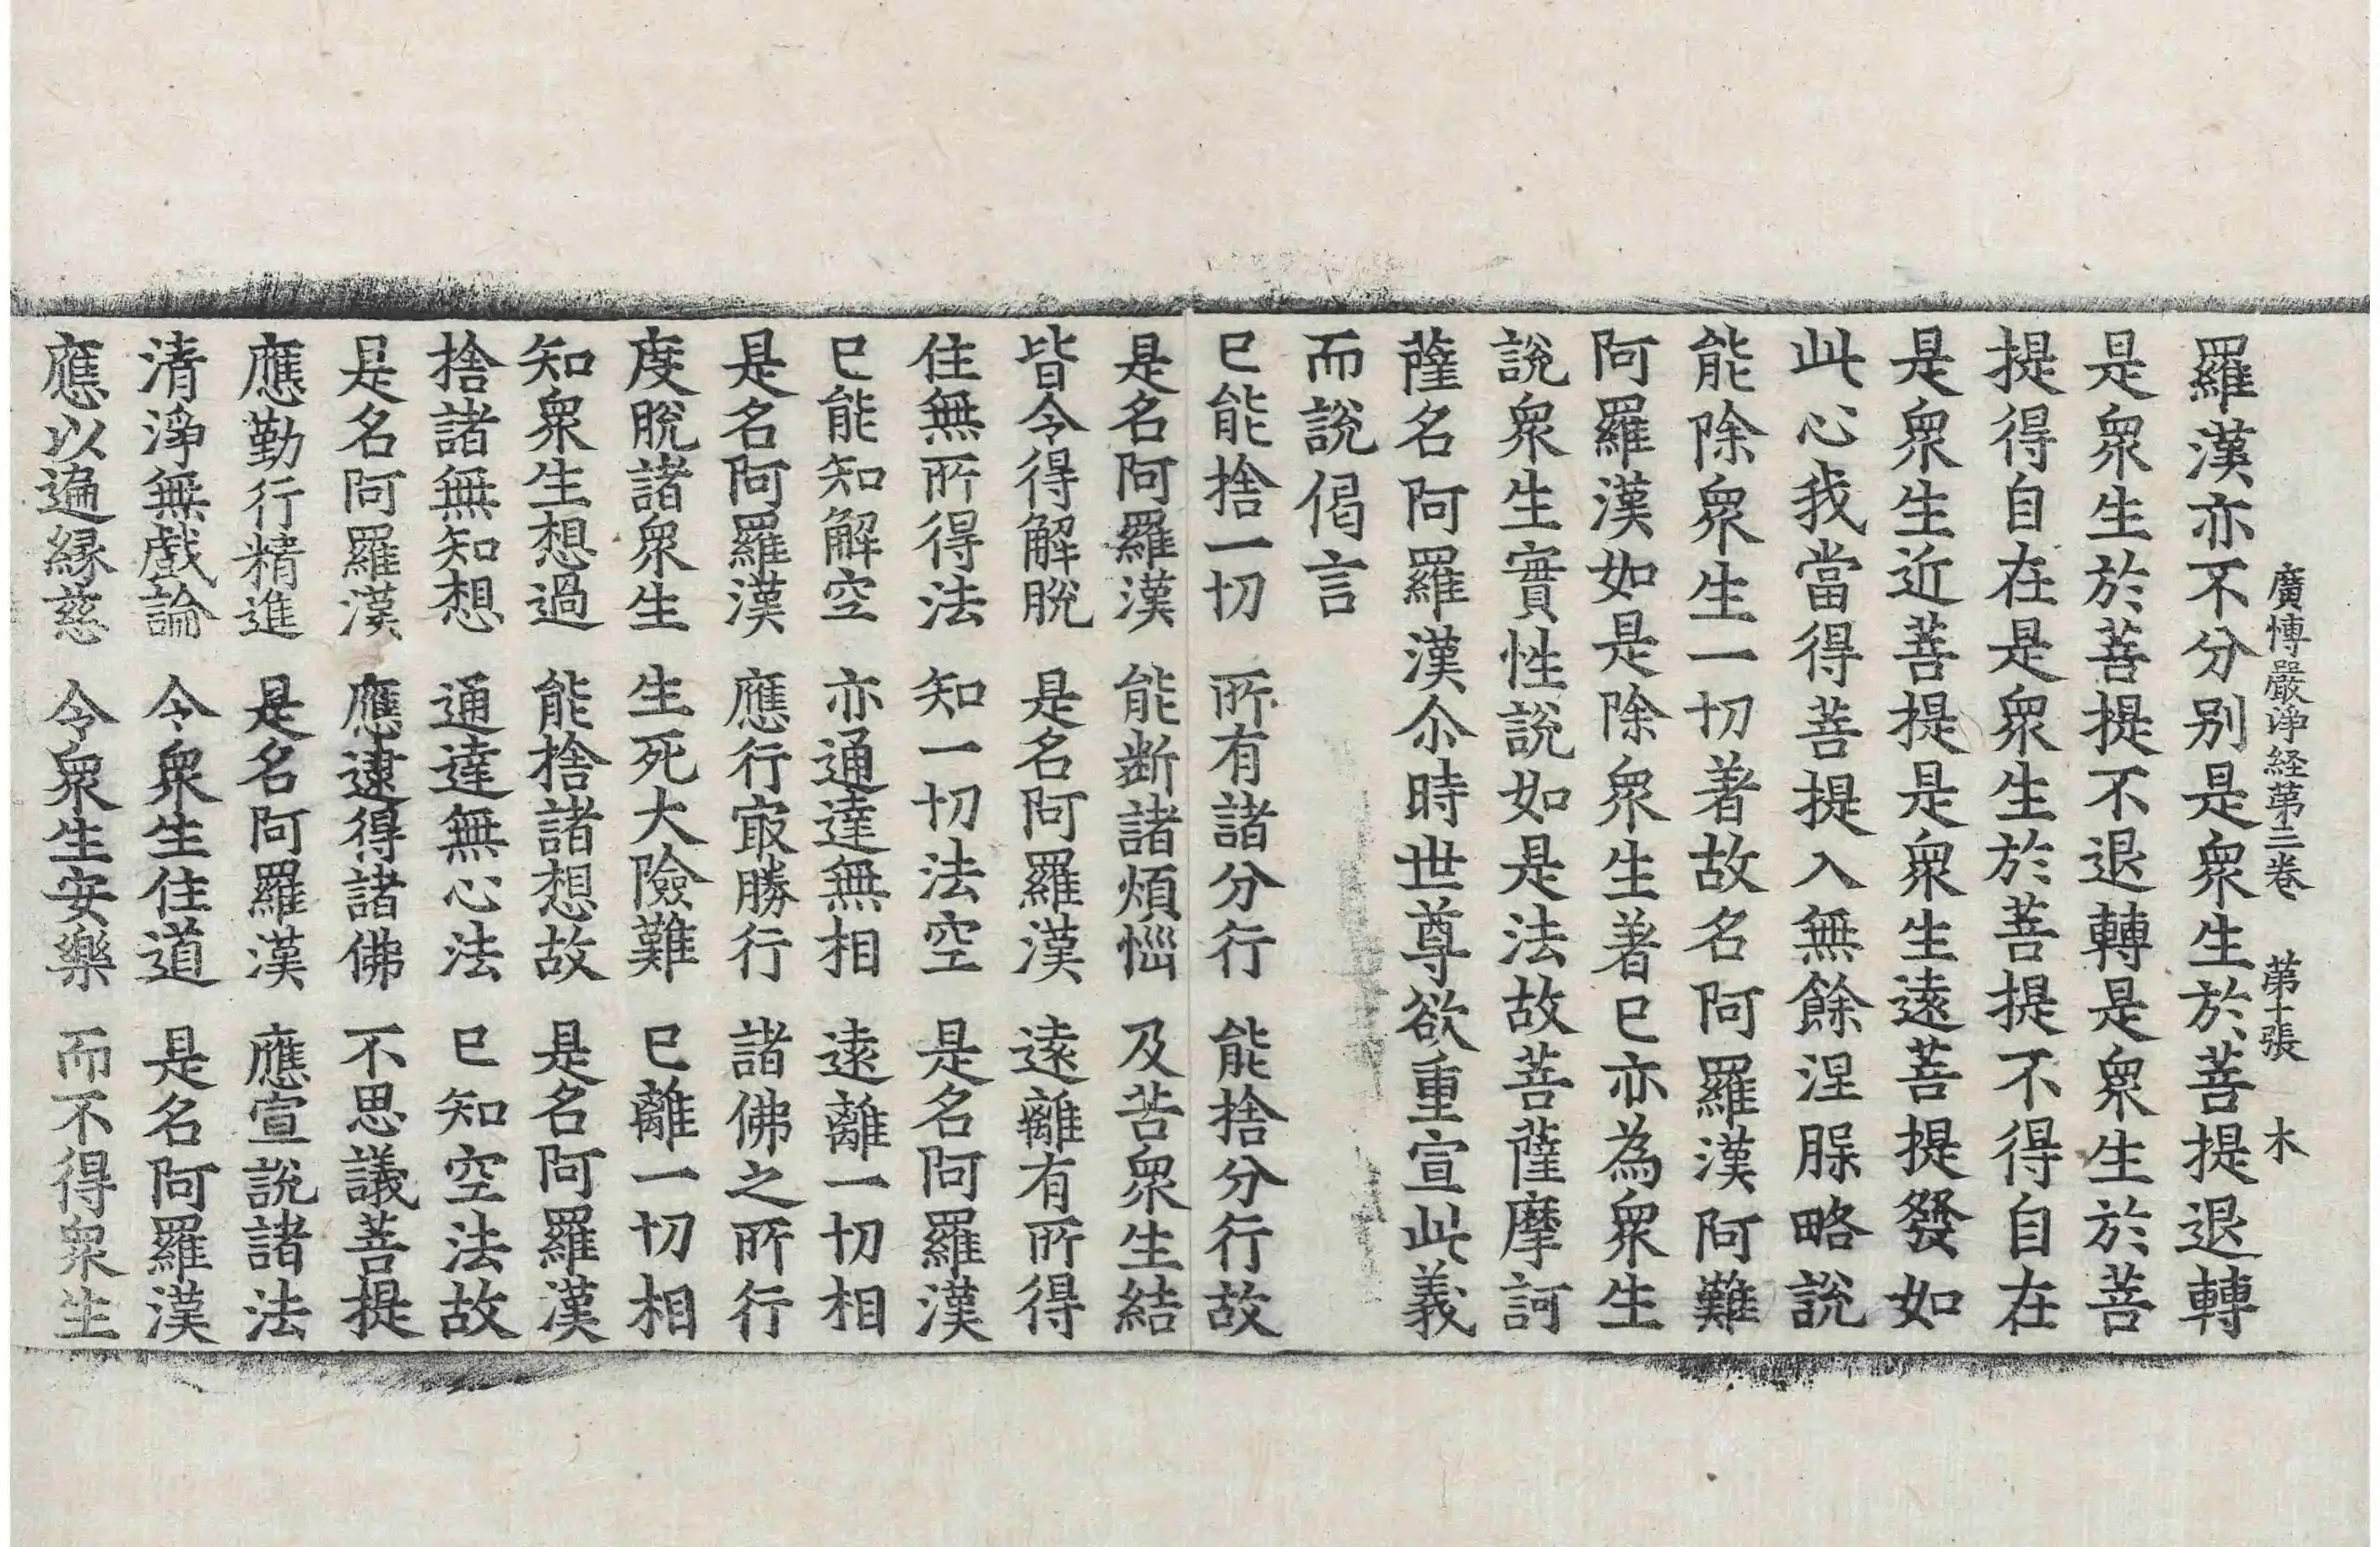 廣博嚴淨経第三卷　第十張　木
羅漢亦不分別是衆生於菩提退轉
是衆生於菩提不退轉是衆生於菩
提得自在是衆生於菩提不得自在
是衆生近菩提是衆生遠菩提發如
此心我當得菩提入無餘涅䏶略說
能除衆生一切著故名阿羅漢阿難
阿羅漢如是除衆生著已亦為衆生
說衆生實性說如是法故菩薩摩訶
薩名阿羅漢尒時世尊欲重宣此義
而說偈言
已能捨一切　所有諸分行　能捨分行故
是名阿羅漢　能断諸煩惱　及苦衆生結
皆令得解脫　是名阿羅漢　遠離有所得
住無所得法　知一切法空　是名阿羅漢
已能知解空　亦通達無相　遠離一切相
是名阿羅漢　應行冣勝行　諸佛之所行
度脫諸衆生　生死大險難　已離一切相
知衆生想過　能捨諸想故　是名阿羅漢
捨諸無知想　通達無心法　已知空法故
是名阿羅漢　應逮得諸佛　不思議菩提
應勤行精進　是名阿羅漢　應宣說諸法
清淨無戲論　令衆生住道　是名阿羅漢
應以遍縁慈　令衆生安樂　而不得衆生